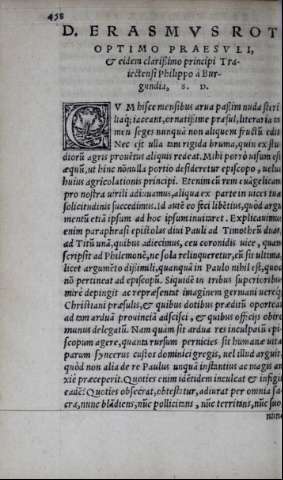 458
D. ERASMVS ROT
OPTIMO PRAESVLI,
& eidem clarißimo principi Tra-
iectensi Philippo à Bur-
gundia, S. D.
CVM hisce mensibus arua paßim nuda steri
liaq; iaceant, ornatißime præsul, literaria ta
men seges nunquã non aliquem fructũ edit
Nec est ulla tam rigida bruma, quin ex stu-
diorũ agris prouẽtus aliquis redeat. Mihi porrò uisum est
æquũ, ut hinc nõnulla portio desideretur episcopo, uelut
huius agricolationis principi. Etenim cũ rem euãgelicam
pro nostra uirili adiuuamus, aliqua ex parte in uicem tuæ
solicitudinis succedimus. Id autẽ eo feci libẽtius, quòd argu
mentũ etiã ipsum ad hoc ipsum inuitaret. Explicauimus
enim paraphrasi epistolas diui Pauli ad Timotheũ duas,
ad Titũ unã, quibus adiecimus, ceu coronidis uice, quam
scripsit ad Philemonẽ, ne sola relinqueretur, cũ sit ultima,
licet argumẽto dißimili, quanquã in Paulo nihil est, quod
nõ pertineat ad episcopũ. Siquidẽ in tribus superioribus
mirè depingit ac repræsentat imaginem germani uereq;
Christiani præsulis, & quibus dotibus præditũ oporteat
ad tam arduã prouinciã adscisci, & quibus officijs obire
munus delegatũ. Nam quàm sit ardua res inculpatũ epi-
scopum agere, quanta rursum pernicies sit humanæ uitæ
parum syncerus custos dominici gregis, uel illud arguit,
quòd non alia de re Paulus unquã instantius ac magis an
xiè præceperit. Quoties enim idẽtidem inculcat & infigit
eadẽ? Quoties obsecrat, obtestatur, adiurat per omnia sa
cra, nunc blãdiens, nũc pollicitans, nũc territans, nũc suo
nomi-